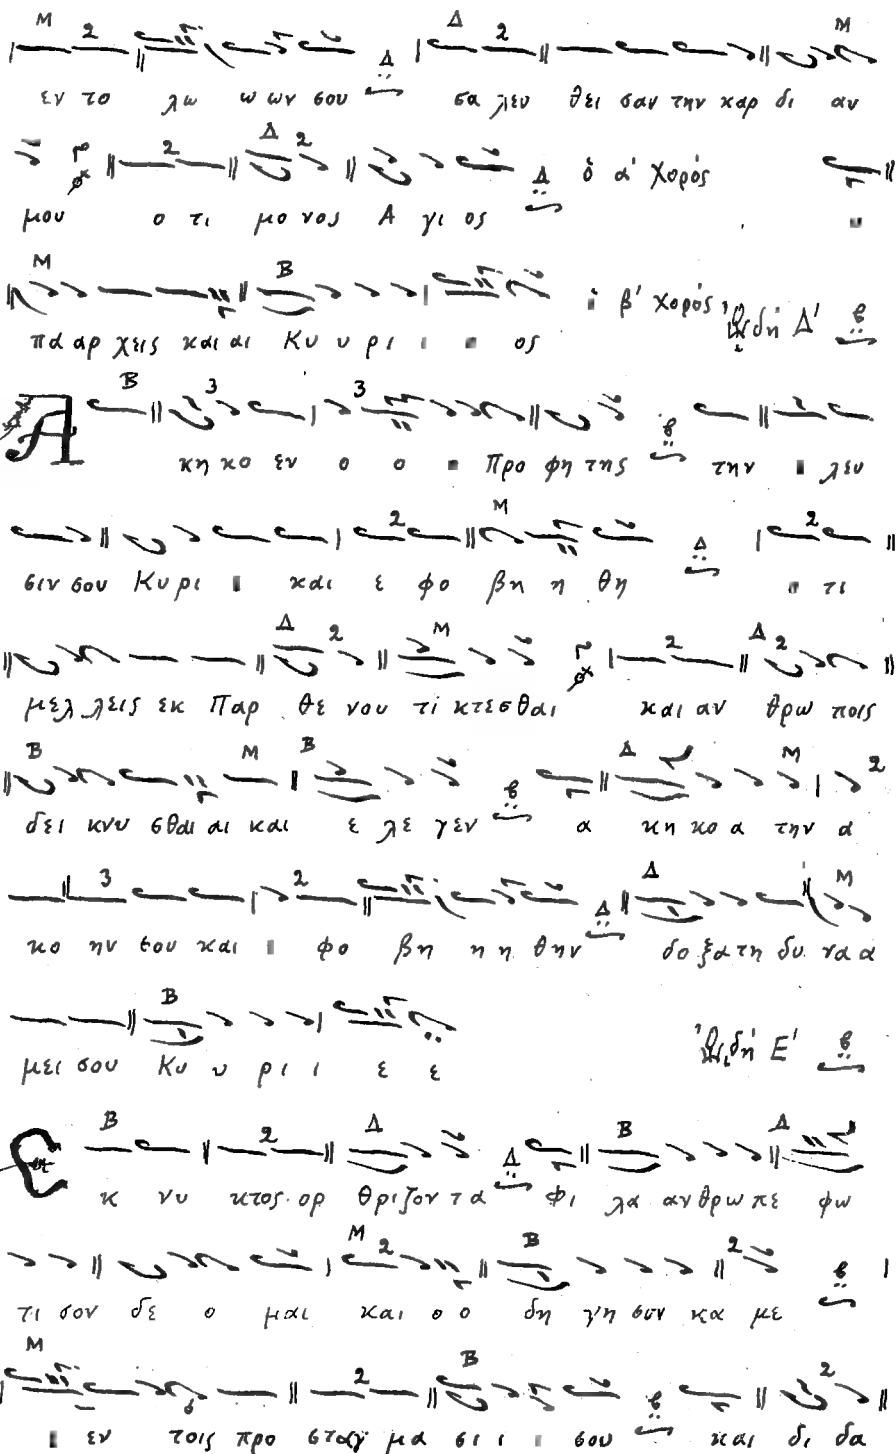 εν το λω ω ων σου σα λευ θει σαν την καρ δι αν
μου ο τι μο νος Α γι ος ὁ α' χορός
πα αρ χεις και αι Κυ υ ρι ος β' χορός ᾨδή Δ'
Α κη κο εν ο ο Προ φη της την λευ
σιν σου Κυ ρι και ε φο βη η θη τι
μελ λεις εκ Παρ θε νου τι κτεσθαι και αν θρω ποις
δει κνυ σθαι αι και ε λε γεν α κη κο α την α
κο ην σου και φο βη η η θην δο ξα τη δυ να α
μει σου Κυ υ ρι ι ε ε ᾨδή Ε'
Εκ κ νυ κτος ορ θριζον τα Φι λα αν θρω πε φω
τι σον δε ο μαι και ο ο δη γη σον κα με
εν τοις προ σταγ μα σι ι σου και δι δα